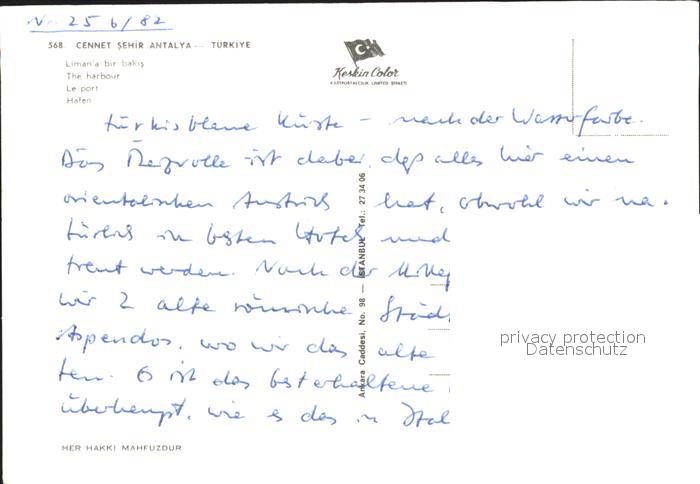 Nr. 25 6/82
568. CENNET ŞEHİR ANTALYA — TÜRKİYE
Liman'a bir bakış
The harbour
Le port
Hafen
Keskin Color
KARTPOSTALCILIK LIMITED ŞİRKETİ
türkisblaue Küste - nach der Wasserfarbe.
Das Reizvolle ist dabei, daß alles hier einen
orientalischen Anstrich hat, obwohl wir na-
türlich in besten Hotels und
treut werden. Nach der
wir 2 alte römische Städ
Aspendos, wo wir das alte
ten. Es ist das besterhaltene
überhaupt, wie es das in Ital
Ankara Caddesi, No. 98 — İSTANBUL Tel.: 27 34 06
privacy protection
Datenschutz
HER HAKKI MAHFUZDUR